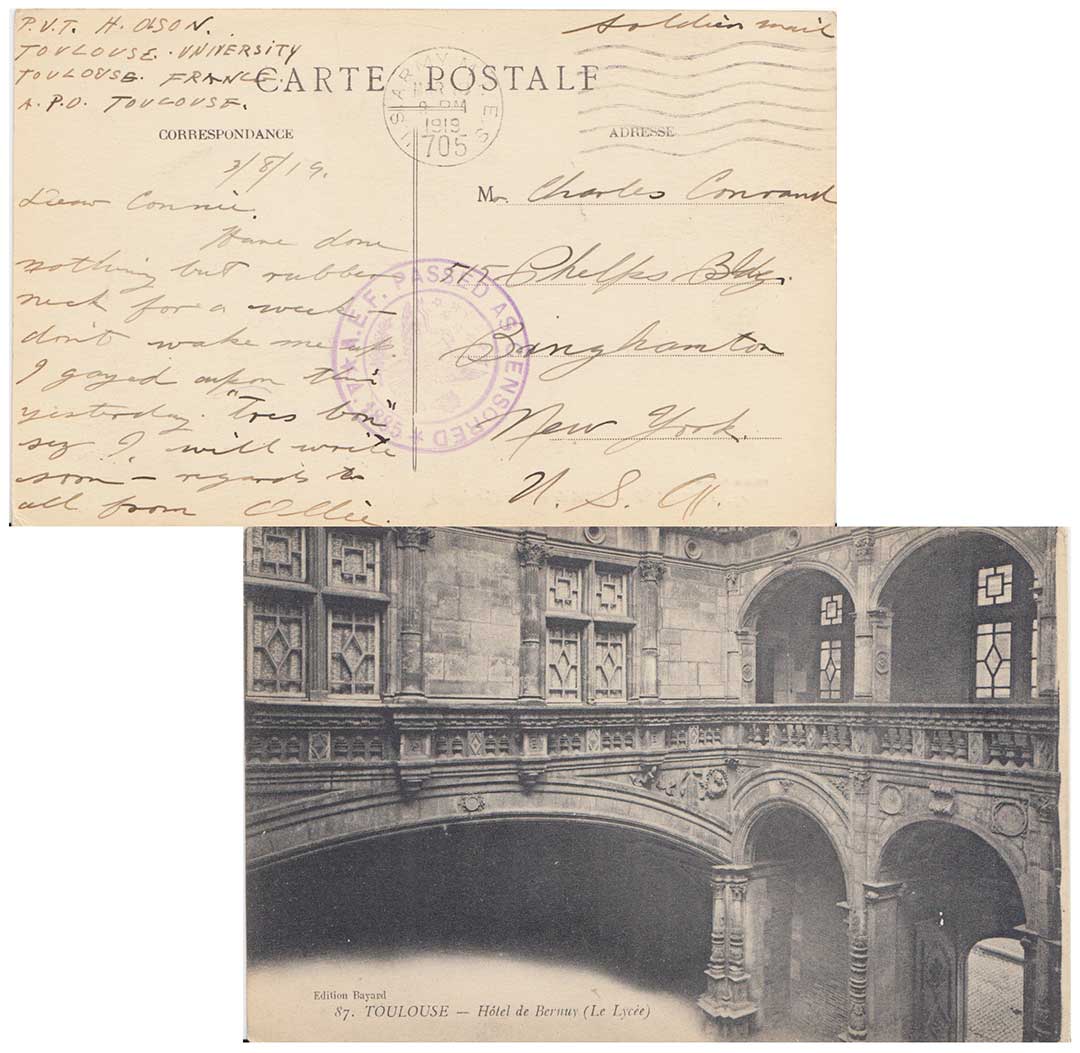 P.V.T. H. OLSON.
TOULOUSE. UNIVERSITY
TOULOUSE. FRANCE.
A.P.O. TOULOUSE.
Soldiers mail
CARTE POSTALE
U.S. ARMY M.P.E.S.
MAR
PM
1919
705
CORRESPONDANCE
ADRESSE
3/8/19.
Dear Connie.
Have done
nothing but rubber
neck for a week –
don't wake me up
I gazed upon this
yesterday. "Tres bon"
sez I, will write
soon – regards to
all from Ollie.
Mr. Charles Conrand
515 Phelps Bldg.
Binghamton
New York.
U. S. A.
A.E.F. PASSED AS CENSORED
Edition Bayard
87. TOULOUSE — Hôtel de Bernuy (Le Lycée)